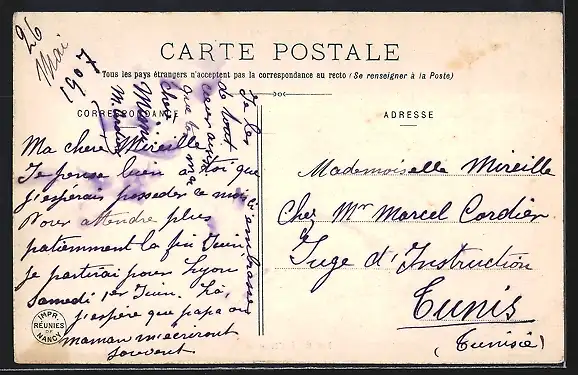 26
Mai
1907
CARTE POSTALE
Tous les pays étrangers n'acceptent pas la correspondance au recto (Se renseigner à la Poste)
CORRESPONDANCE
ADRESSE
Ma chère Mireille
Je pense bien à toi que
j'espérais posséder ce mois ci
Pour attendre plus
patiemment la fin Juin
je partirai pour Lyon
Samedi 1er Juin. Là,
j'espère que papa ou
maman m'écriront
souvent
Je les
de tout
cœur ainsi
que
ma
chère
Mimi
t'embrasse
Mademoiselle Mireille
Chez Mr Marcel Cordier
Juge d'Instruction
Tunis
(Tunisie)
IMPR.
RÉUNIES
DE
NANCY